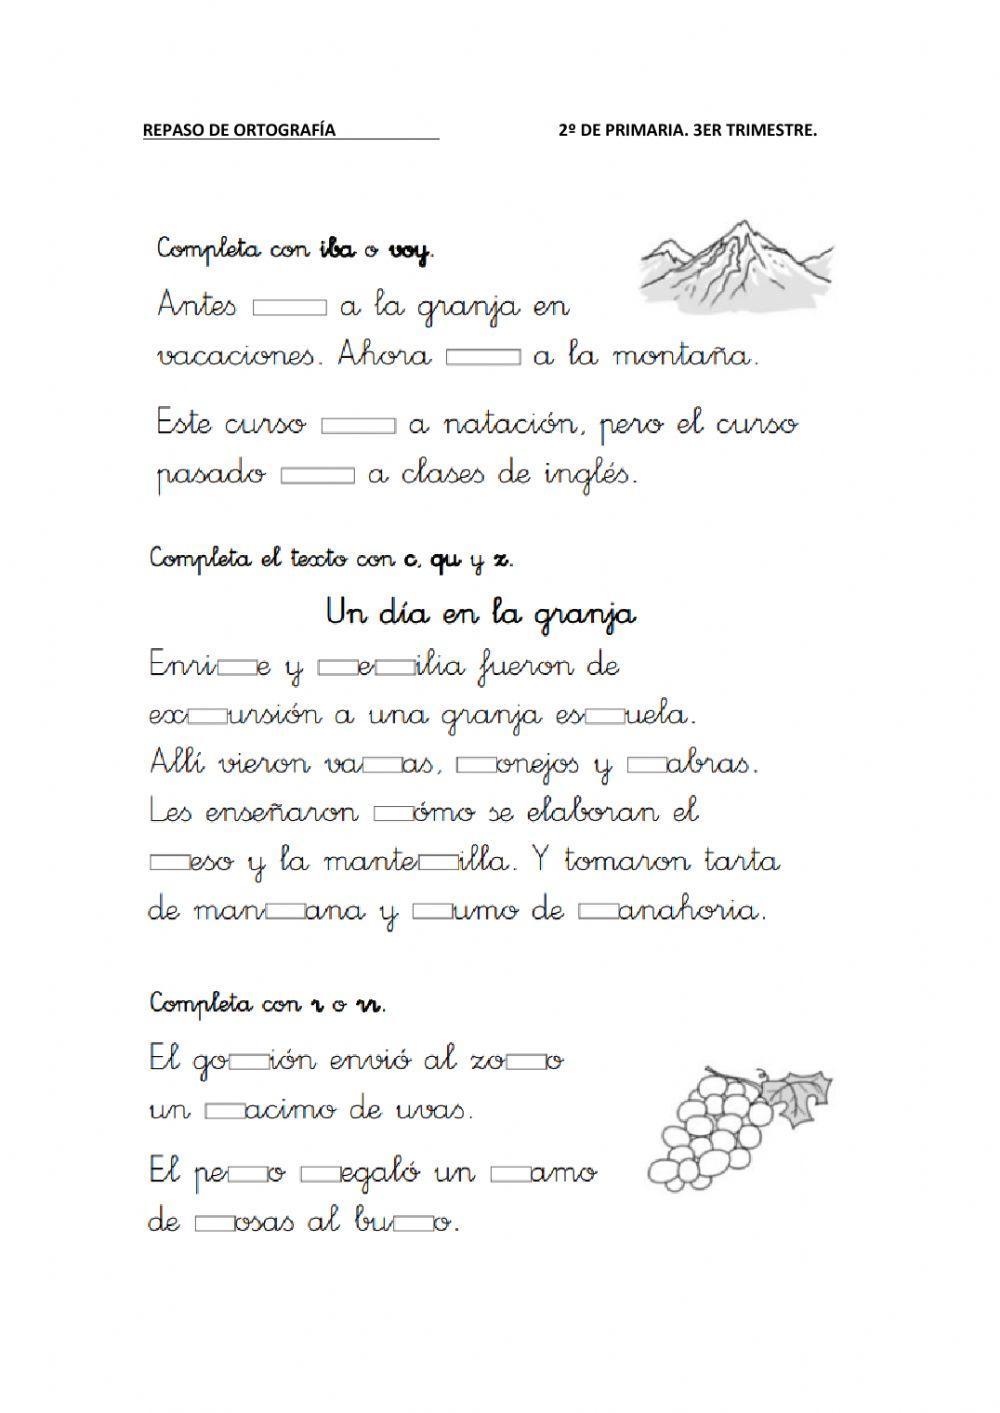 REPASO DE ORTOGRAFÍA 2º DE PRIMARIA. 3ER TRIMESTRE.
Completa con iba o voy.
Antes ____ a la granja en
vacaciones. Ahora ____ a la montaña.
Este curso ____ a natación, pero el curso
pasado ____ a clases de inglés.
Completa el texto con c, qu y z.
Un día en la granja
Enri__e y __e__ilia fueron de
ex__ursión a una granja es__uela.
Allí vieron va__as, __onejos y __abras.
Les enseñaron __ómo se elaboran el
__eso y la mante__illa. Y tomaron tarta
de man__ana y __umo de __anahoria.
Completa con r o rr.
El go__ión envió al zo__o
un __acimo de uvas.
El pe__o __egaló un __amo
de __osas al bu__o.